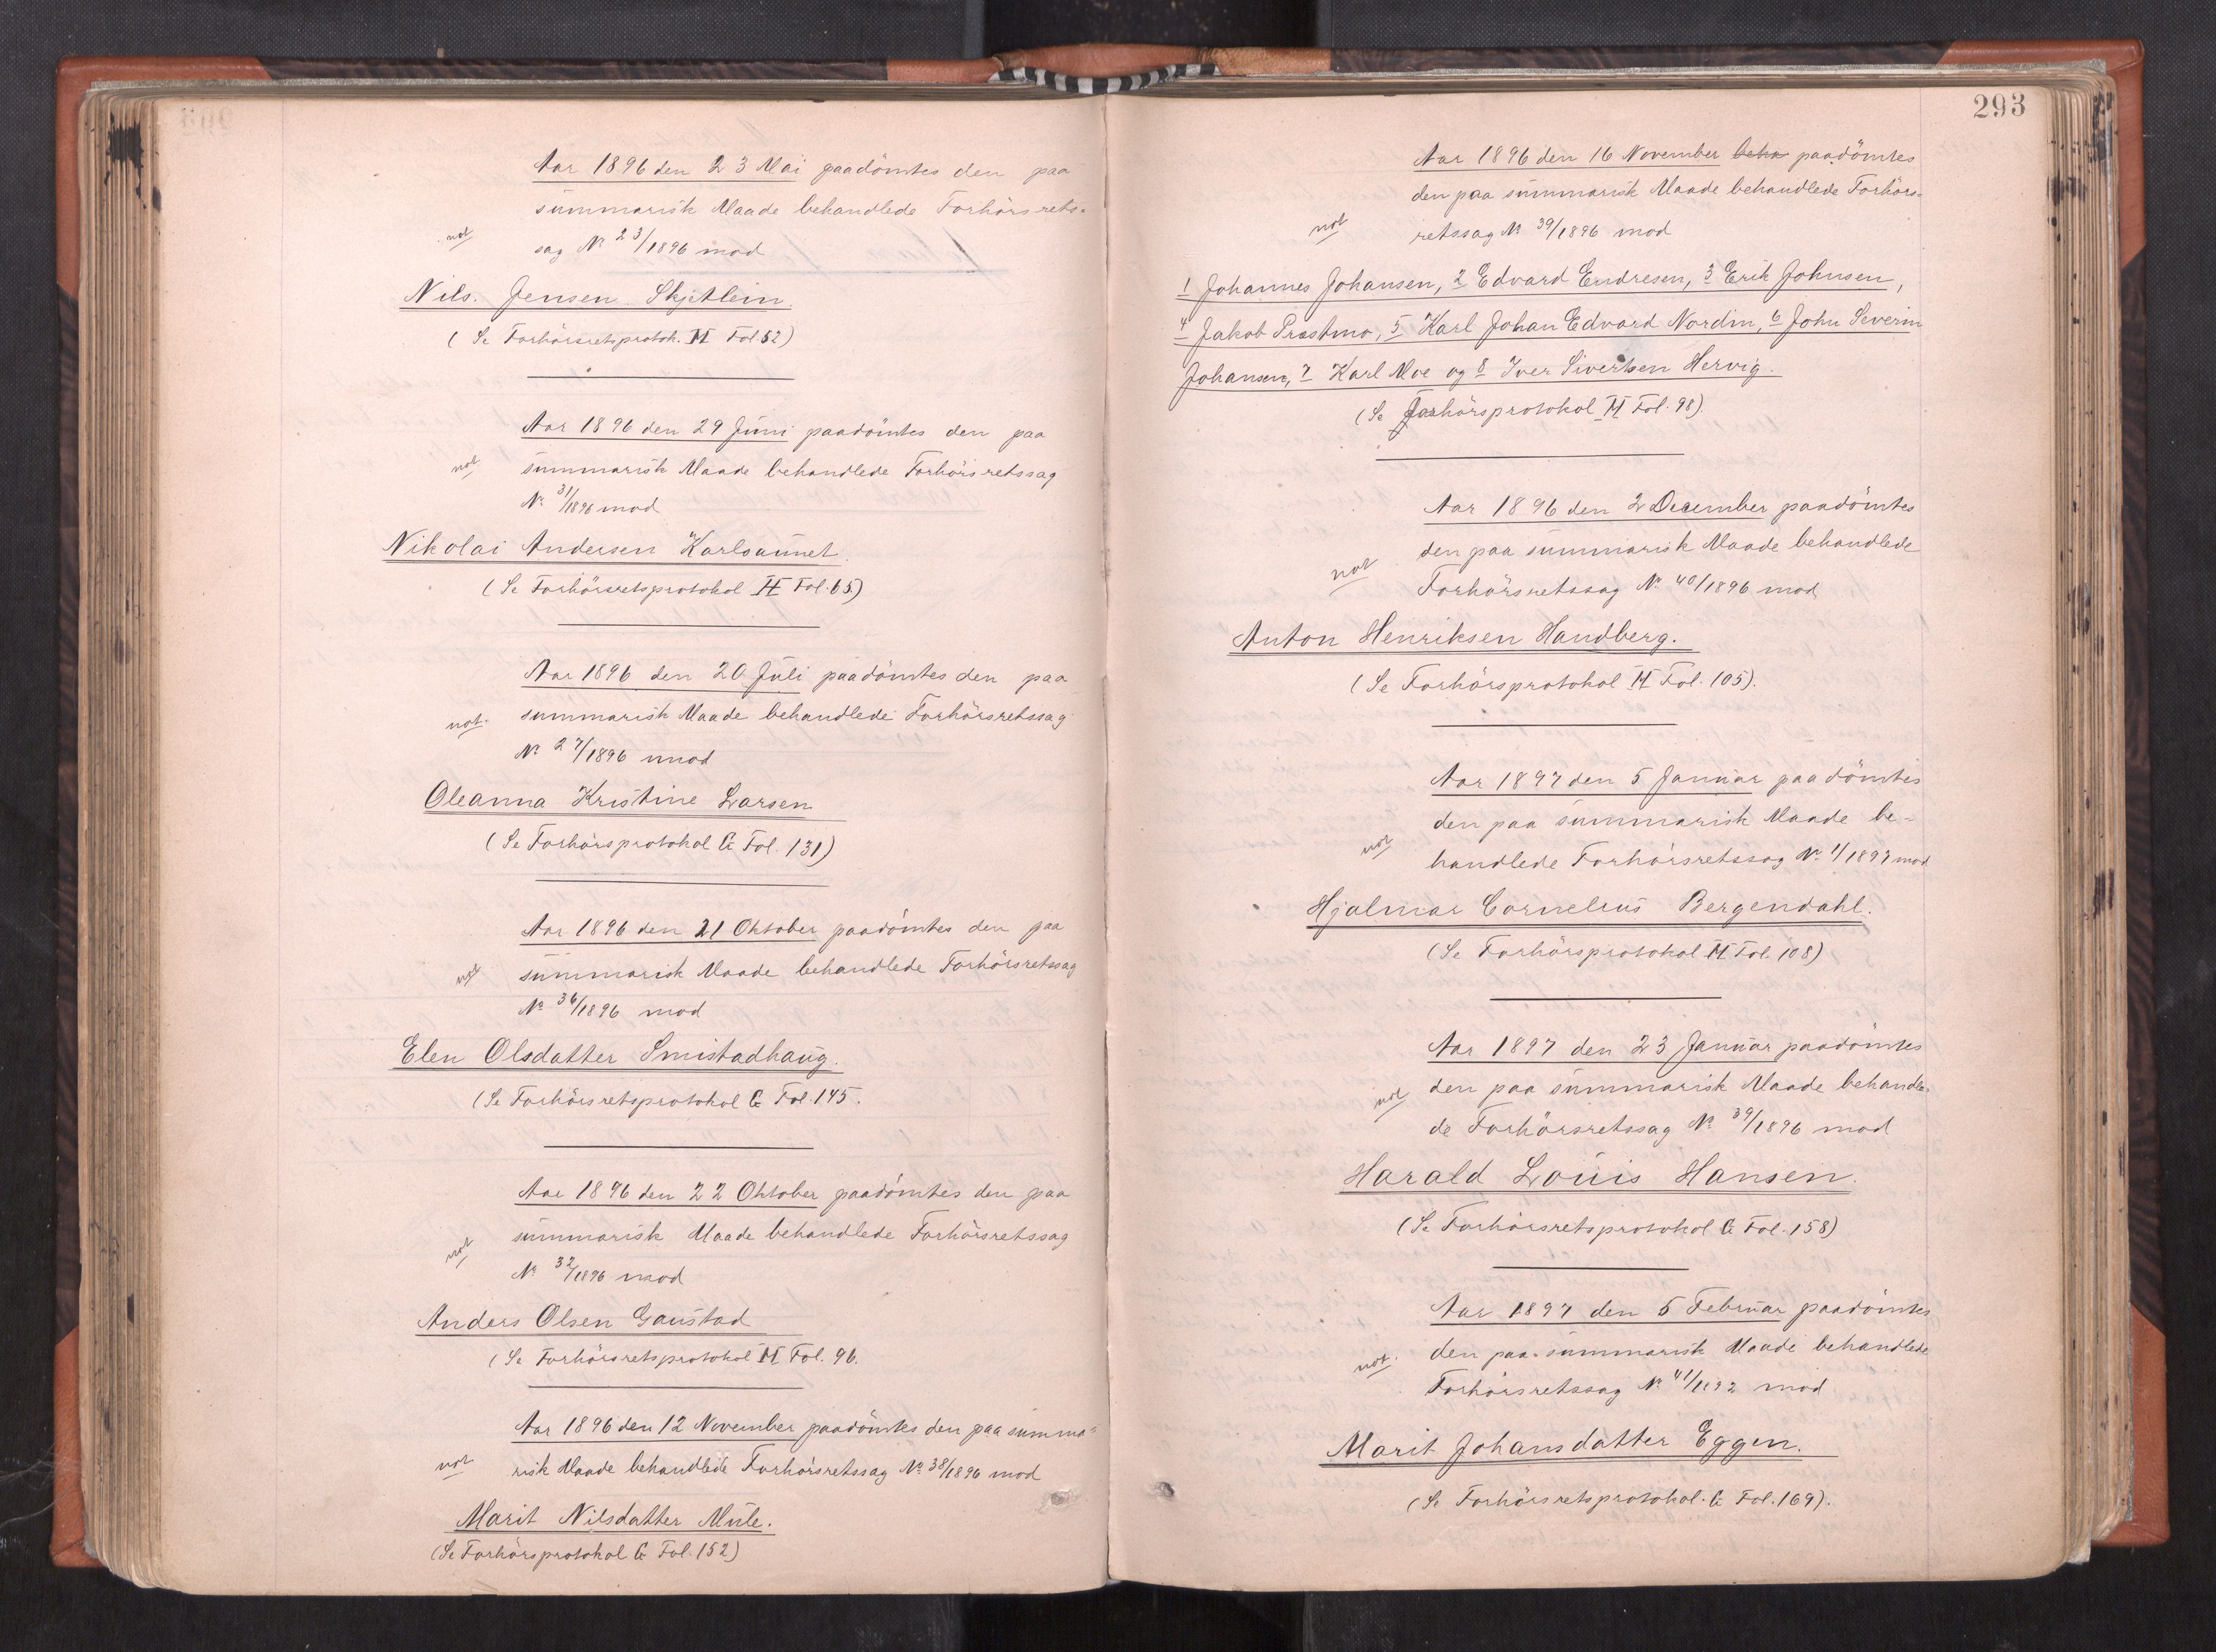 Aar 1896 den 23 Mai paadömtes den paa
summarisk Maade behandlede Forhörsrets-
not
sag No 23/1896 mod
Nils Jensen Skjetlein.
(Se Forhörsretsprotok. H Fol. 52)
Aar 1896 den 29 Juni paadömtes den paa
not summarisk Maade behandlede Forhörsretssag
No 31/1896 mod
Nikolai Andersen Karlsaunet.
(Se Forhörsretsprotokol H Fol. 65)
Aar 1896 den 20 Juli paadömtes den paa
not. summarisk Maade behandlede Forhörsretssag
No 27/1896 mod
Oleanna Kristine Larsen
(Se Forhörsprotokol G Fol. 131)
Aar 1896 den 21 Oktober paadömtes den paa
not summarisk Maade behandlede Forhörsretssag
No 36/1896 mod
Elen Olsdatter Smistadhaug.
(Se Forhörsretsprotokol G Fol. 145.
Aar 1896 den 22 Oktober paadömtes den paa
not summarisk Maade behandlede Forhörsretssag
No 32/1896 mod
Anders Olsen Gaustad
(Se Forhörsretsprotokol H Fol. 96.
Aar 1896 den 12 November paadömtes den paa summa-
not risk Maade behandlede Forhörsretssag No 38/1896 mod
Marit Nilsdatter Mule.
(Se Forhörsprotokol G Fol. 152)
293
Aar 1896 den 16 November beha paadömtes
den paa summarisk Maade behandlede Forhörs-
not retssag No 39/1896 mod
1 Johannes Johansen, 2 Edvard Endresen, 3 Erik Johnsen,
4 Jakob Præstmo, 5 Karl Johan Edvard Nordin, 6 John Severin
Johansen, 7 Karl Moe og 8 Iver Sivertsen Hervig.
(Se Forhörsprotokol H Fol. 98).
Aar 1896 den 2 December paadömtes
den paa summarisk Maade behandlede
not Forhörsretssag No 40/1896 mod
Anton Henriksen Handberg.
(Se Forhörsprotokol H Fol. 105).
Aar 1897 den 5 Januar paadömtes
den paa summarisk Maade be-
not handlede Forhörsretssag No 1/1897 mod
Hjalmar Cornelius Bergendahl.
(Se Forhörsprotokol H Fol. 108)
Aar 1897 den 23 Januar paadömtes
not den paa summarisk Maade behandle-
de Forhörsretssag No 39/1896 mod
Harald Louis Hansen.
(Se Forhörsretsprotokol G Fol. 158)
Aar 1897 den 5 Februar paadömtes
not. den paa summarisk Maade behandlede
Forhörsretssag No 41/1892 mod
Marit Johansdatter Eggen.
(Se Forhörsretsprotokol. G Fol. 169).